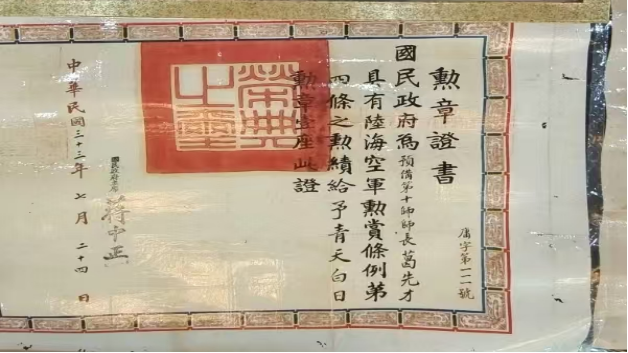 勳章證書
廬字第一一號
國民政府為預備第十師師長葛先才
具有陸海空軍勳賞條例第
四條之勳績給予青天白日
勳章壹座此證
榮典之璽
國民政府主席
蔣中正
中華民國三十三年七月二十四日